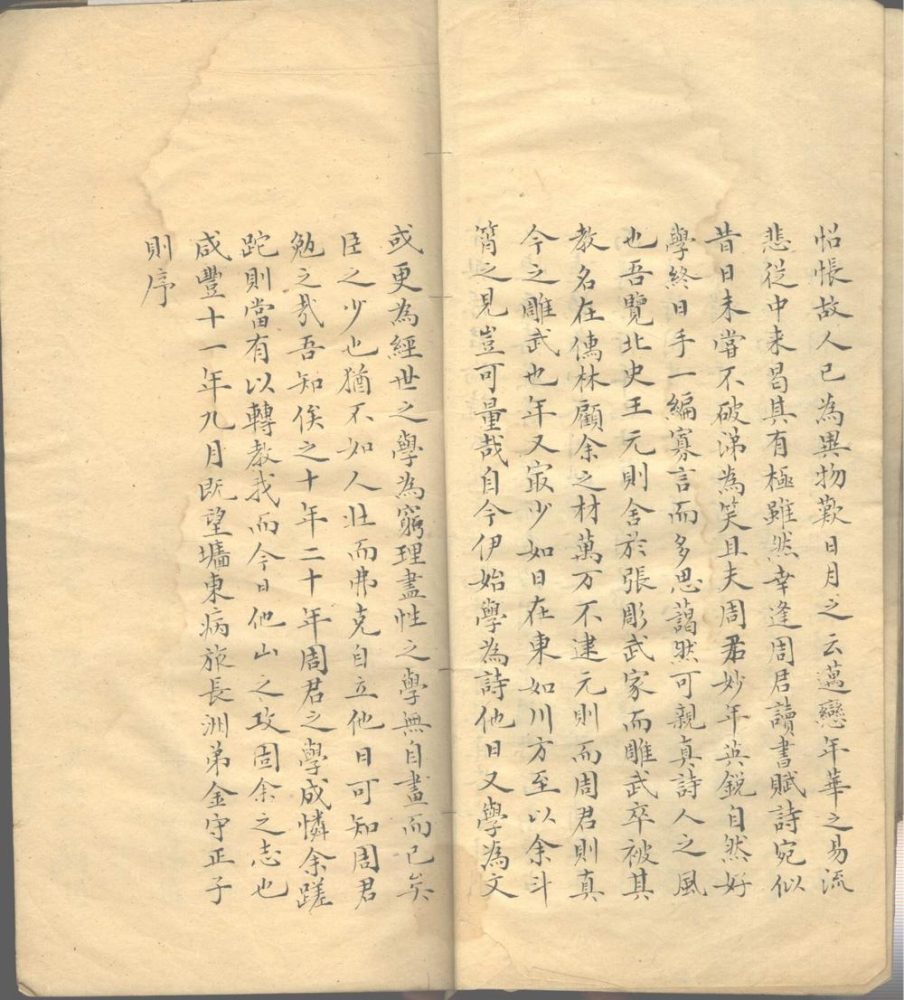 怊悵故人已為異物歎日月之云邁戀年華之易流
悲從中来曷其有極雖然幸逢周君讀書賦詩宛似
昔日未嘗不破涕為笑且夫周君妙年英銳自然好
學終日手一編寡言而多思藹然可親真詩人之風
也吾覽北史王元則舍於張彫武家而雕武卒被其
教名在儒林顧余之材萬万不逮元則而周君則真
今之雕武也年又㝡少如日在東如川方至以余斗
筲之見豈可量哉自今伊始學為詩他日又學為文
或更為經世之學為窮理盡性之學無自畫而已矣
臣之少也猶不如人壯而弗克自立他日可知周君
勉之哉吾知俟之十年二十年周君之學成憐余蹉
跎則當有以轉教我而今日他山之攻固余之志也
咸豐十一年九月既望墉東病旅長洲弟金守正子
則序